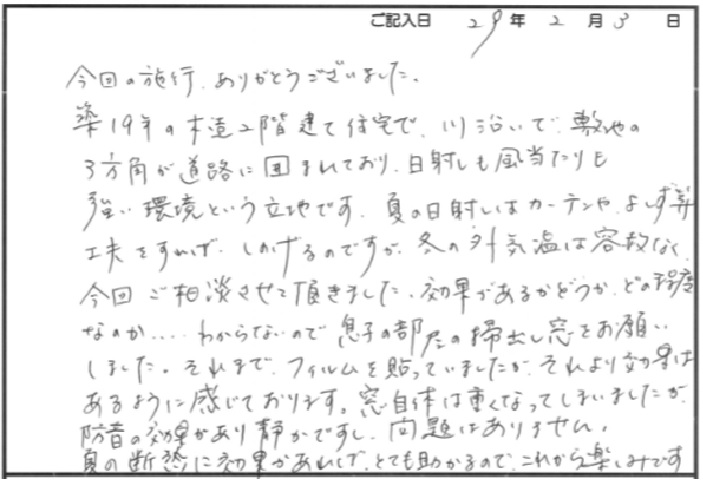 ご記入日 29年 2月 3日
今回の施行、ありがとうございました。
築19年の木造2階建て住宅で、川沿いで、敷地の
3方角が道路に囲まれており、日射しも風当たりも
強い環境という立地です。夏の日射しはカーテンや、よしず等
工夫をすれば、しのげるのですが、冬の外気温は容赦なく、
今回ご相談させて頂きました。効果があるかどうか、どの程度
なのか‥‥わからないので息子の部屋の掃出し窓をお願い
しました。それまで、フィルムを貼っていましたが、それより効果は
あるように感じております。窓自体は重くなってしまいましたが、
防音の効果があり静かですし、問題はありません。
夏の断熱に効果があれば、とても助かるので、これから楽しみです